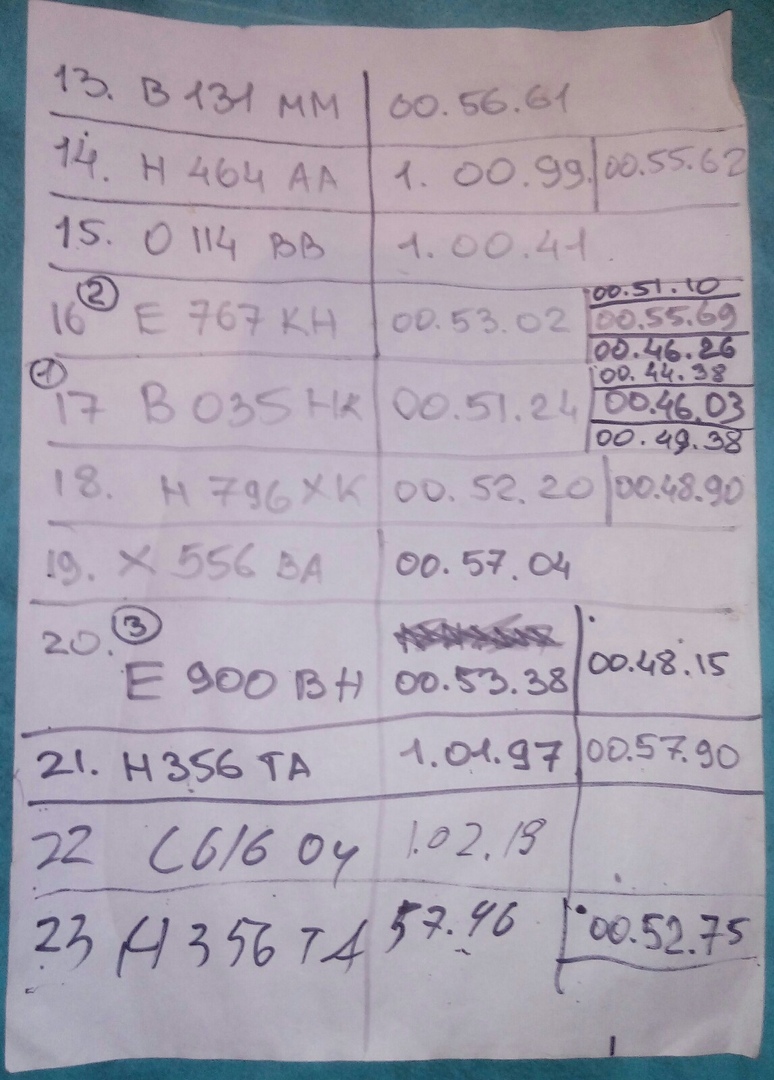 13. В 131 ММ 00.56.61
14. Н 464 АА 1. 00.99. 00.55.62
15. О 114 ВВ 1. 00.41
00.51.10
16 ② Е 767 КН 00.53.02 00.55.69
00.46.26
① 00.44.38
17 В 035 НК 00.51.24 00.46.03
00.49.38
18. Н 796 ХК 00.52.20 00.48.90
19. Х 556 ВА 00.57.04
20. ③
Е 900 ВН 00.53.38 00.48.15
21. Н 356 ТА 1.01.97 00.57.90
22 С616 Оу 1.02.19
23 Н 356 ТА 57.46 00.52.75